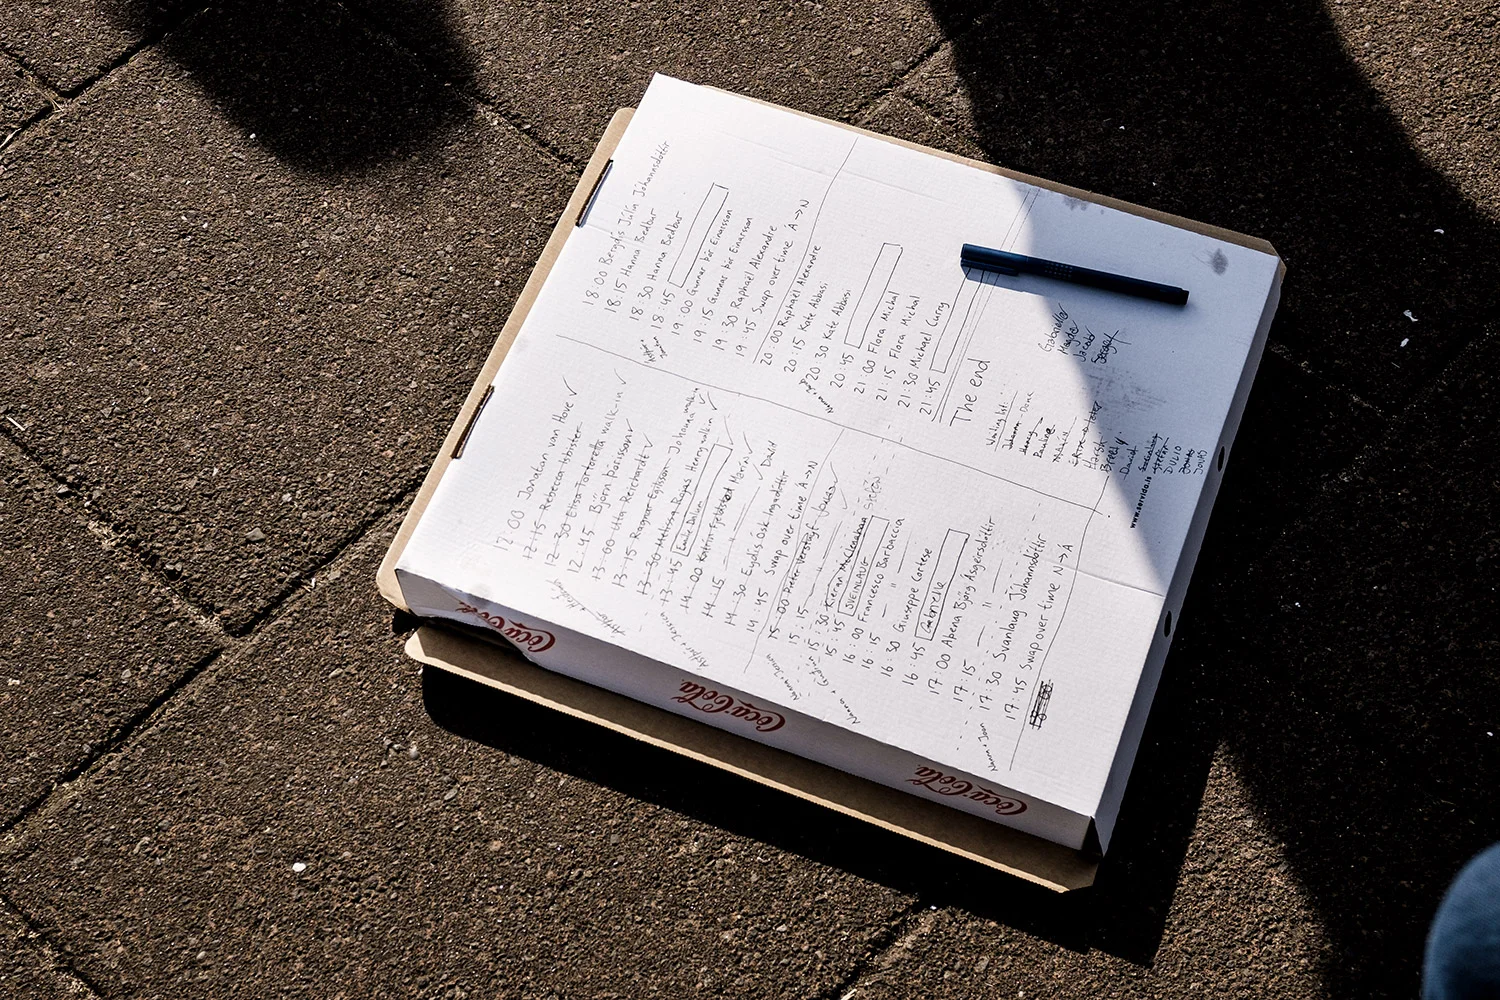 12:00 Jonatan van Hove ✓
12:15 Rebecca Isbister
12:30 Elisa Tortorella walk-in ✓
12:45 Björn Þórisson ✓
13:00 Uta Reichardt ✓
13:15 Ragnar Egilsson Johanna walkin
13:30 Melissa Rojas Henry walkin ✓
13:45
14:00 Katrín Fjeldsted María ✓
14:15 David
14:30 Eydís Ósk Ingadóttir
14:45 Swap over time A→N
15:00 Pieter Verstuyf
15:15 ✓
15:30 Kieran McClenahan
15:45 SVEINLAUG
16:00 Francesco Barbaccia
16:15 — " —
16:30 Giuseppe Cortese
16:45 Gabrielle
17:00 Abena Björg Ásgeirsdóttir
17:15 — " —
17:30 Svanlaug Jóhannsdóttir
17:45 Swap over time N→A
18:00 Bergdís Júlía Jóhannsdóttir
18:15 Hanna Bedbur
18:30 Hanna Bedbur
18:45
19:00 Gunnar Þór Einarsson
19:15 Gunnar Þór Einarsson
19:30 Raphael Alexandre
19:45 Swap over time A→N
20:00 Raphael Alexandre
20:15 Kate Abbasi
20:30 Kate Abbasi
20:45
21:00 Flora Michal
21:15 Flora Michal
21:30 Michael Curry
21:45
The end
Waiting list:
Henry
Pauline
Harsh
Breely
David
DULIO
JOHO
Gabrielle
Magda
Jacob
www.servida.is
Coca-Cola
Coca-Cola
Coca-Cola
Coca-Cola
Coca-Cola
Coca-Cola